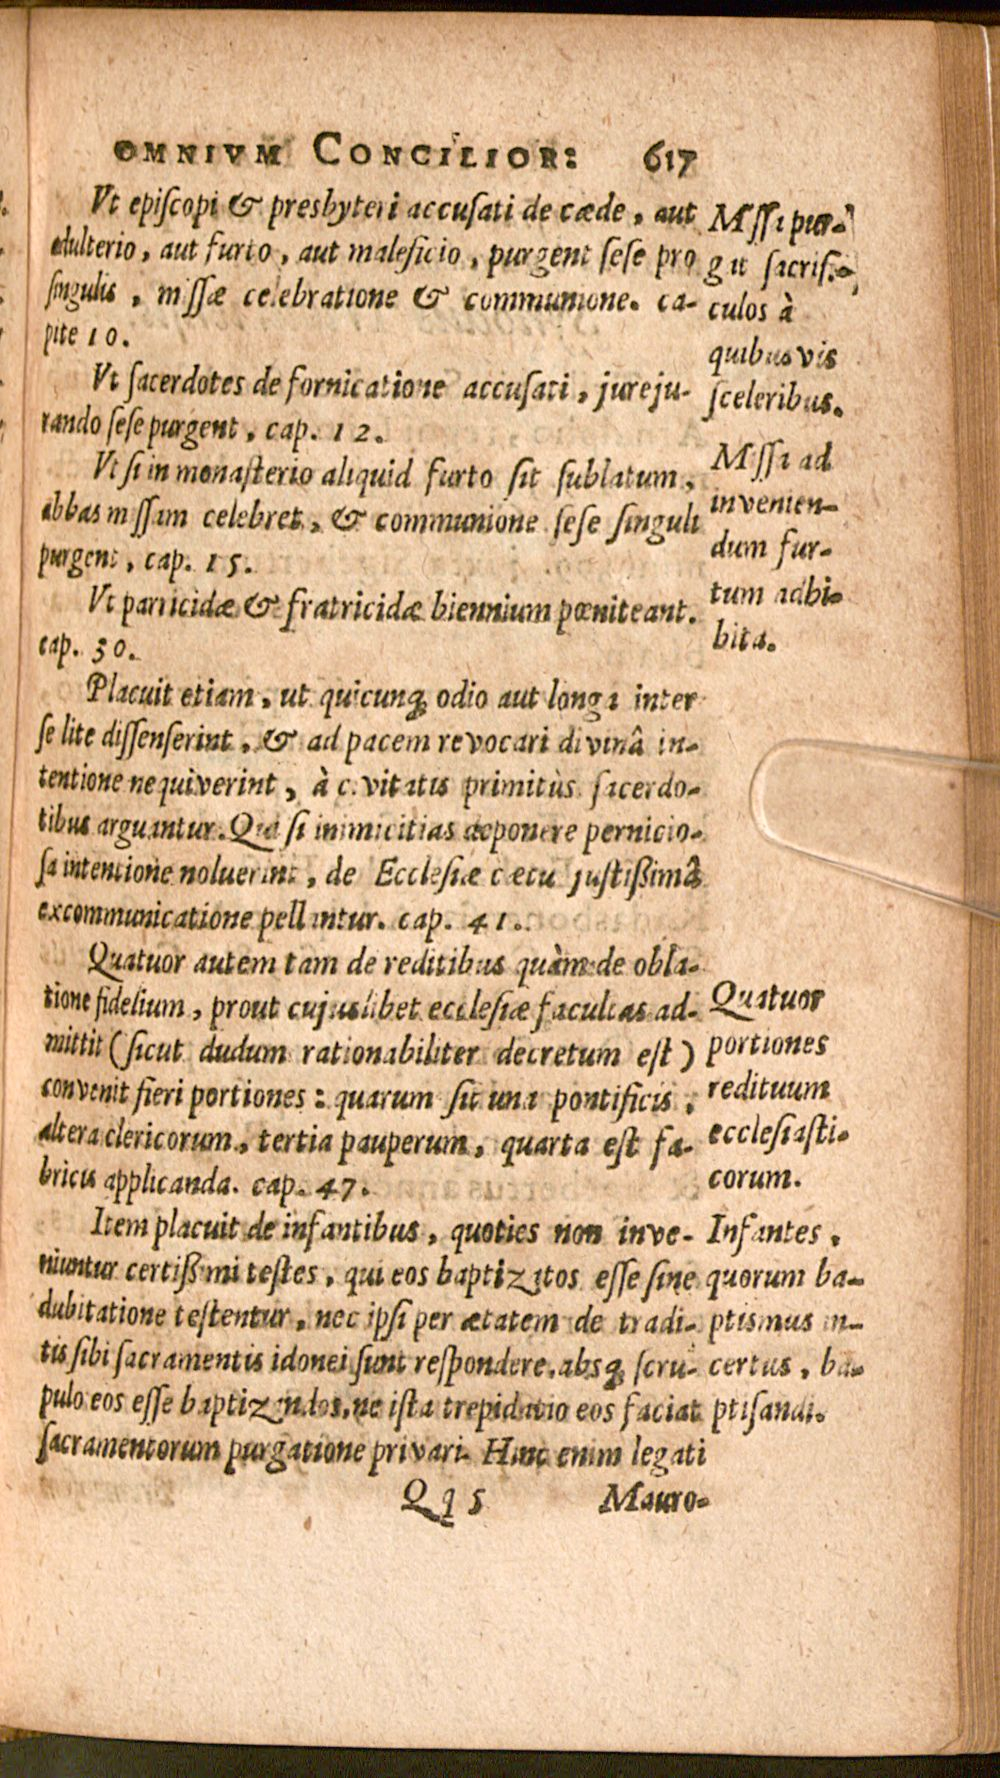 OMNIVM CONCILIOR: 617
Vt episcopi & presbyteri accusati de cæde, aut
adulterio, aut furto, aut maleficio, purgent sese pro
singulis, missæ celebratione & communione. ca-
pite 10.
Vt sacerdotes de fornicatione accusati, jureju-
rando sese purgent, cap. 12.
Vt si in monasterio aliquid furto sit sublatum,
abbas missam celebret, & communione sese singuli
purgent, cap. 15.
Vt parricidæ & fratricidæ biennium pœniteant.
cap. 30.
Placuit etiam, ut quicunq; odio aut longa inter
se lite dissenserint, & ad pacem revocari divinâ in-
tentione nequiverint, à civitatis primitùs sacerdo-
tibus arguantur. Qui si inimicitias deponere pernicio-
sa intentione noluerint, de Ecclesiæ cœtu justissimâ
excommunicatione pellantur. cap. 41.
Quatuor autem tam de reditibus quàm de obla-
tione fidelium, prout cujuslibet ecclesiæ facultas ad-
mittit (sicut dudum rationabiliter decretum est)
convenit fieri portiones: quarum sit una pontificis,
altera clericorum, tertia pauperum, quarta est fa-
bricis applicanda. cap. 47.
Item placuit de infantibus, quoties non inve-
niuntur certissimi testes, qui eos baptizatos esse sine
dubitatione testentur, nec ipsi per ætatem de tradi-
tis sibi sacramentis idonei sunt respondere, absq; scru-
pulo eos esse baptizandos, ne ista trepidatio eos faciat
sacramentorum purgatione privari. Hinc enim legati
Qq 5 Mauro-
Missa pur-
git sacrifi-
culos à
quibusvis
sceleribus.
Missa ad
invenien-
dum fur-
tum adhi-
bita.
Quatuor
portiones
redituum
ecclesiasti-
corum.
Infantes,
quorum ba-
ptismus in-
certus, ba-
ptisandi.